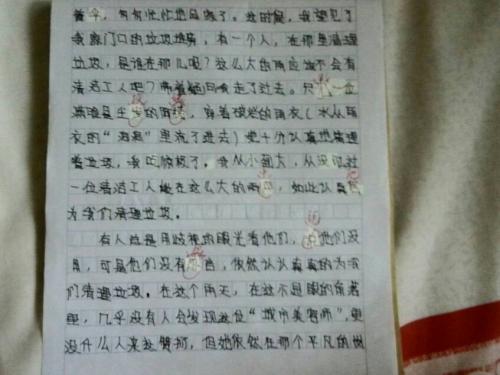 着伞，匆匆忙忙地回家了。这时候，我望见了
我家门口的垃圾堆旁，有一个人，在那里清理
垃圾，是谁在那儿呢？这么大的雨应该不会有
清洁工人吧？带着疑问我走了过去。只 一位
满头是 的 ，穿着破烂的雨衣（水从雨
衣的“ ”里流了进去）她十分认真地清理
着垃圾，我吃惊极了。我从小到大，从没见过
一位清洁工人能在这么大的雨 ，如此认真地
为我们清理垃圾。
有人总是用歧视的眼光看他们， 他们没
用，可是他们没有 言，依然认认真真的为我
们清理垃圾。在这个雨天，在这不显眼的角落
里，几乎没有人会发现这位“城市美容师”，更
没什么人来 赞扬，但她依然在那个平凡的岗